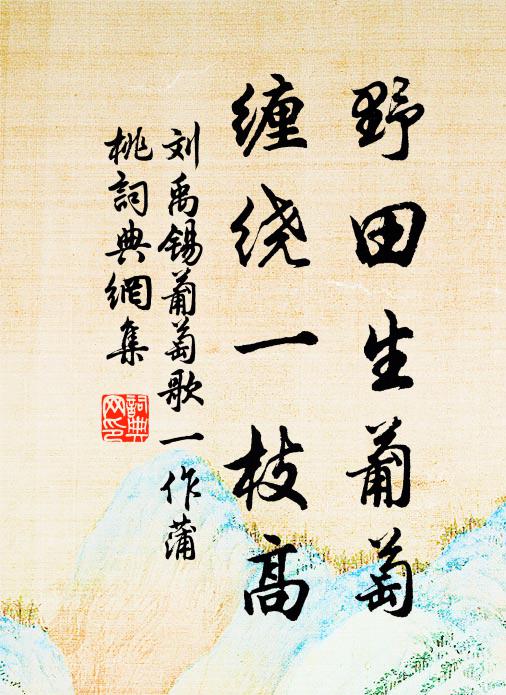 野田生葡萄
缠绕一枝高
刘禹锡葡萄歌一作蒲
桃詞典網集
詞典網印